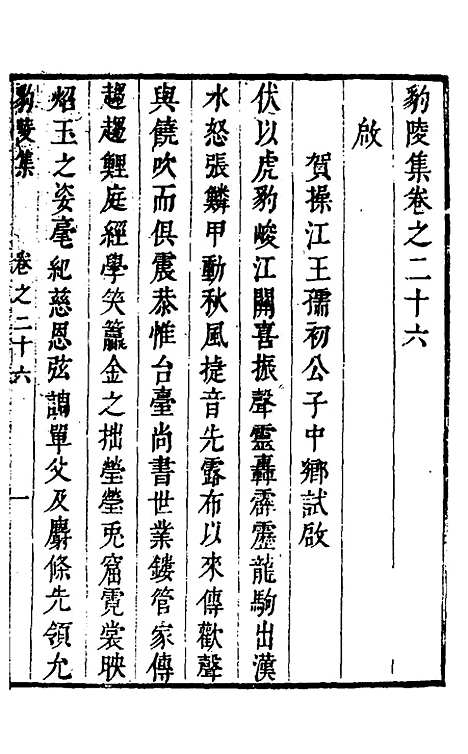 豹陵集卷之二十六
啟
賀操江王孺初公子中鄉試啟
伏以虎豹峻江關喜振聲靈轟霹靂龍駒出漢
水怒張鱗甲動秋風捷音先露布以來傳歡聲
與饒吹而俱震恭惟台臺尚書世業鏤管家傳
趨趨鯉庭經學笑籯金之拙瑩瑩兎窟霓裳映
炤玉之姿毫紀慈恩弦謂單父及麝條先領允
豹陵集
卷之二十六
一